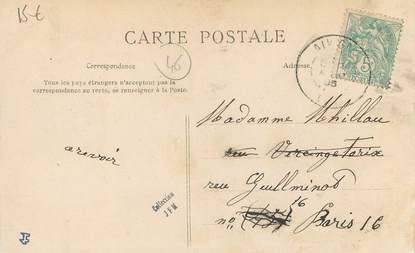 15€
CARTE POSTALE
46
Correspondance
Adresse
Tous les pays étrangers n'acceptent pas la
correspondance au recto, se renseigner à la Poste.
Madame Millau
rue Vercingetorix
rue Guilleminot
16
no Paris 16
arevoir
Collection
JFM